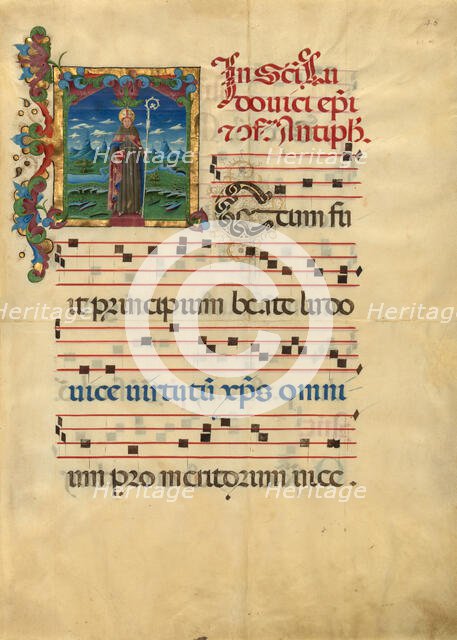 In Sci Lu
dovici epi
Antiph.
Tecum fu
it principium beate ludo
uice uirtutū xp̄s omni
um pro meritorum uice.
Heritage Heritage Heritage
Heritage Heritage Heritage
Heritage Heritage Heritage